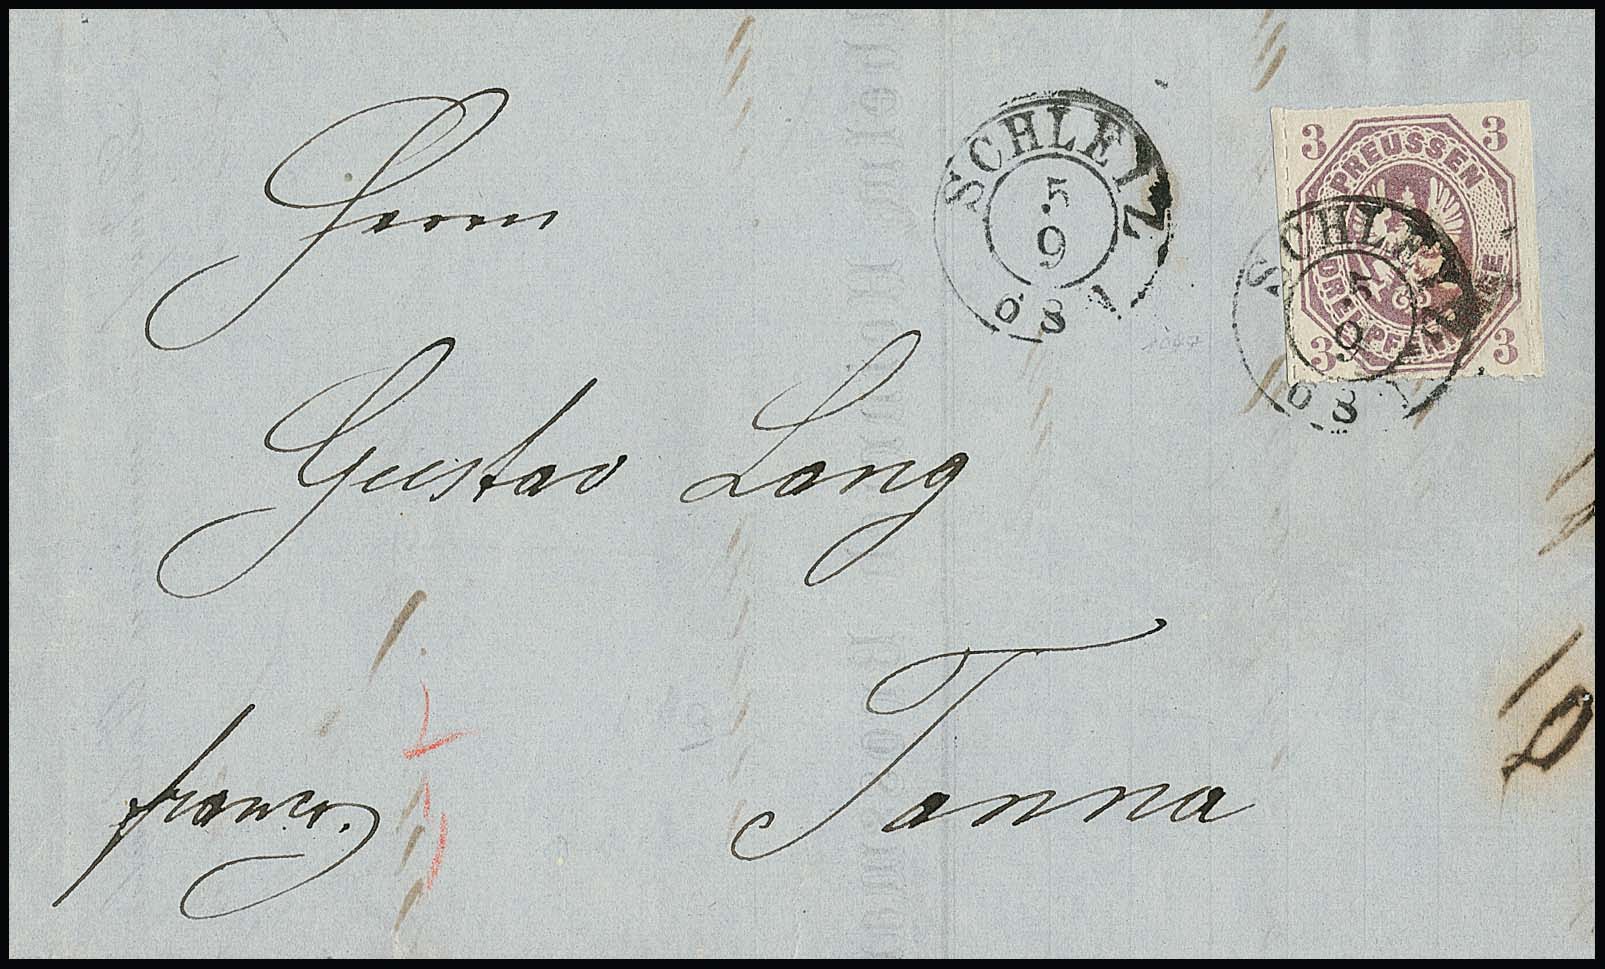 SCHLEIZ
5
9
68 1
3 3
PREUSSEN
DREI PFENNINGE
3 3
SCHLEIZ
5
9
68 1
Herrn
Gustav Lang
Tanna
franco.